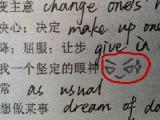 变主意 change one's m
决心：决定 make up one
路：屈服：让步 give in
我一个坚定的眼神
常 as usual
想做某事 dream of do